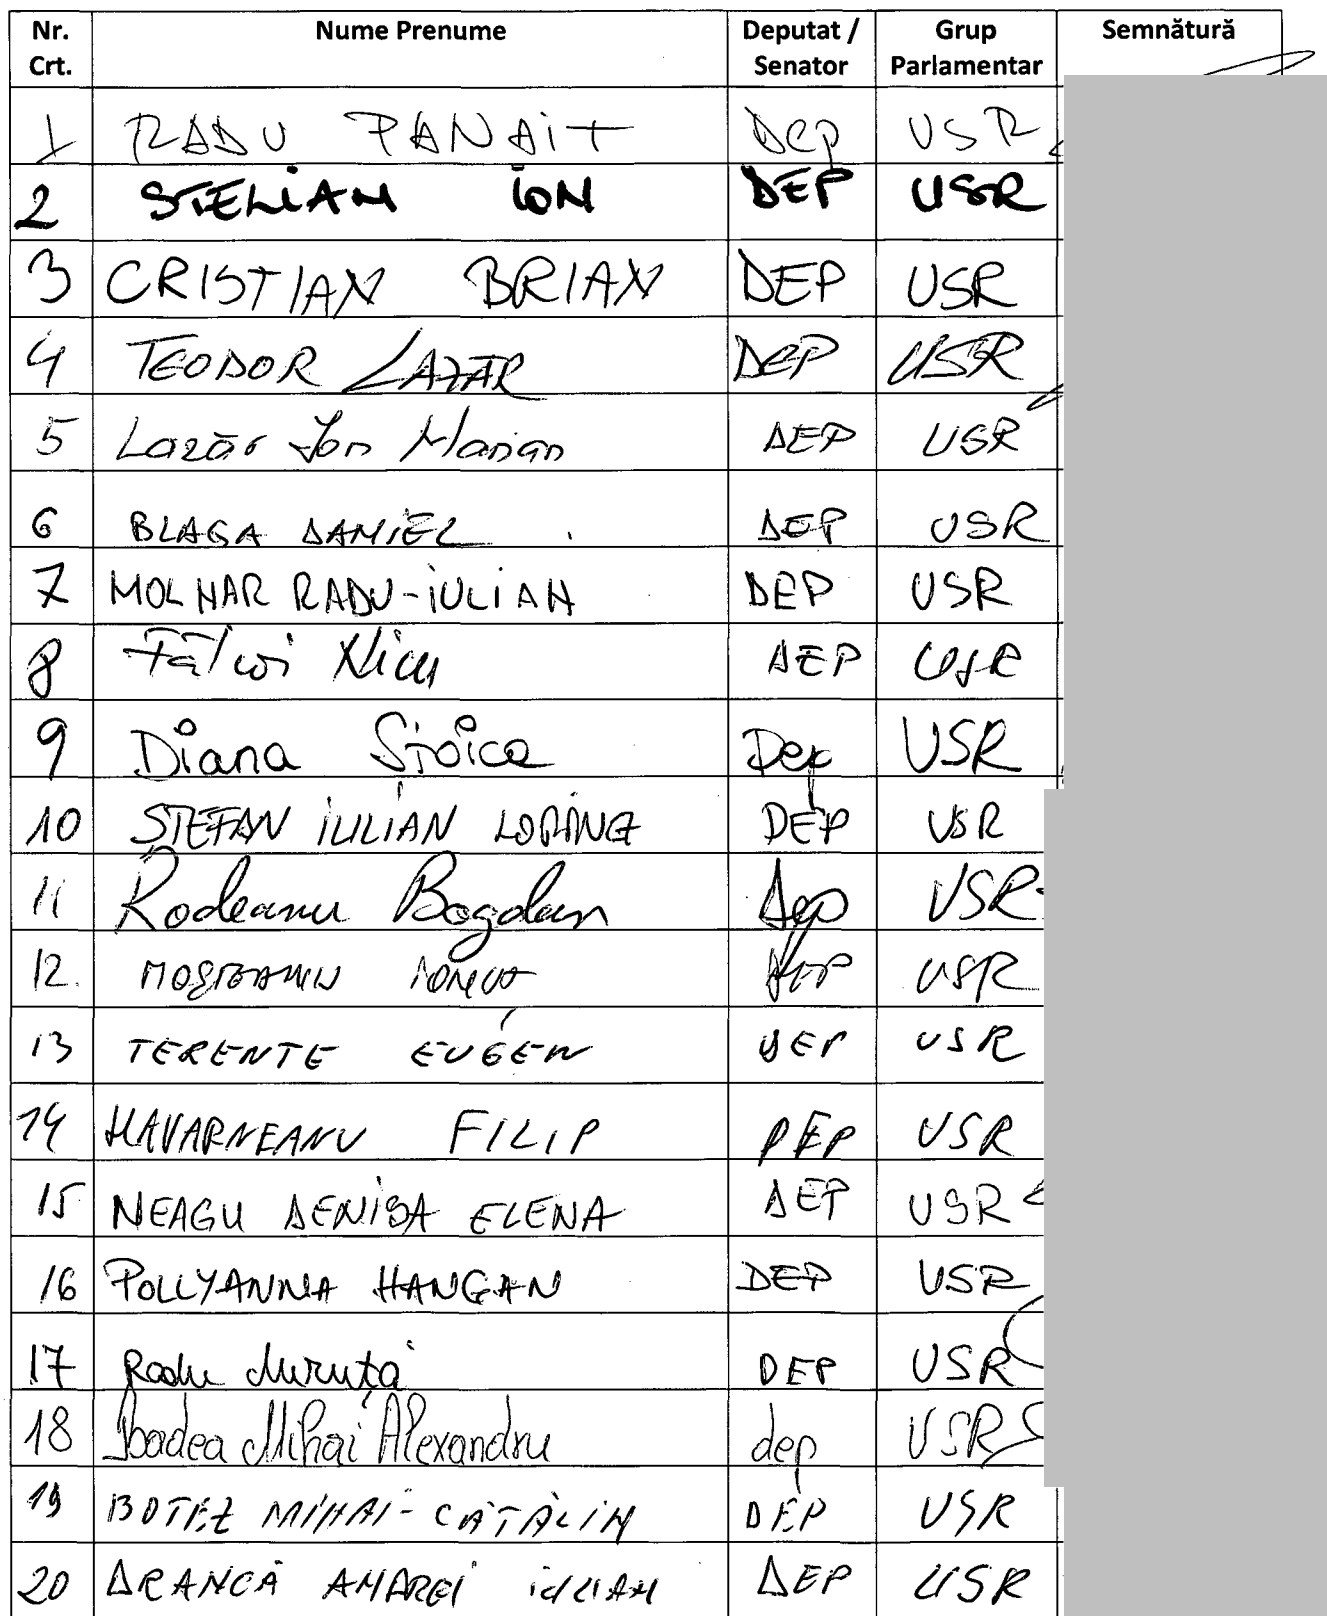 Nr. Crt. Nume Prenume Deputat / Senator Grup Parlamentar Semnătură
1 RADU PANAIT Dep USR
2 STELIAN ION DEP USR
3 CRISTIAN BRIAN DEP USR
4 TEODOR LAZĂR DEP USR
5 Lazăr Ion Marian DEP USR
6 BLAGA DANIEL DEP USR
7 MOLNAR RADU-IULIAN DEP USR
8 Fălcoi Nicu DEP USR
9 Diana Stoica Dep USR
10 STEFAN IULIAN LORINCZ DEP USR
11 Rodeanu Bogdan Dep USR
12. MOȘTEANU IONUȚ DEP USR
13 TERENTE EUGEN DEP USR
14 HAVARNEANU FILIP DEP USR
15 NEAGU DENISA ELENA DEP USR
16 POLLYANNA HANGAN DEP USR
17 Radu Miruță DEP USR
18 Badea Mihai Alexandru dep USR
19 BOTEZ MIHAI-CĂTĂLIN DEP USR
20 DRANCĂ AMAREI IULIAN DEP USR